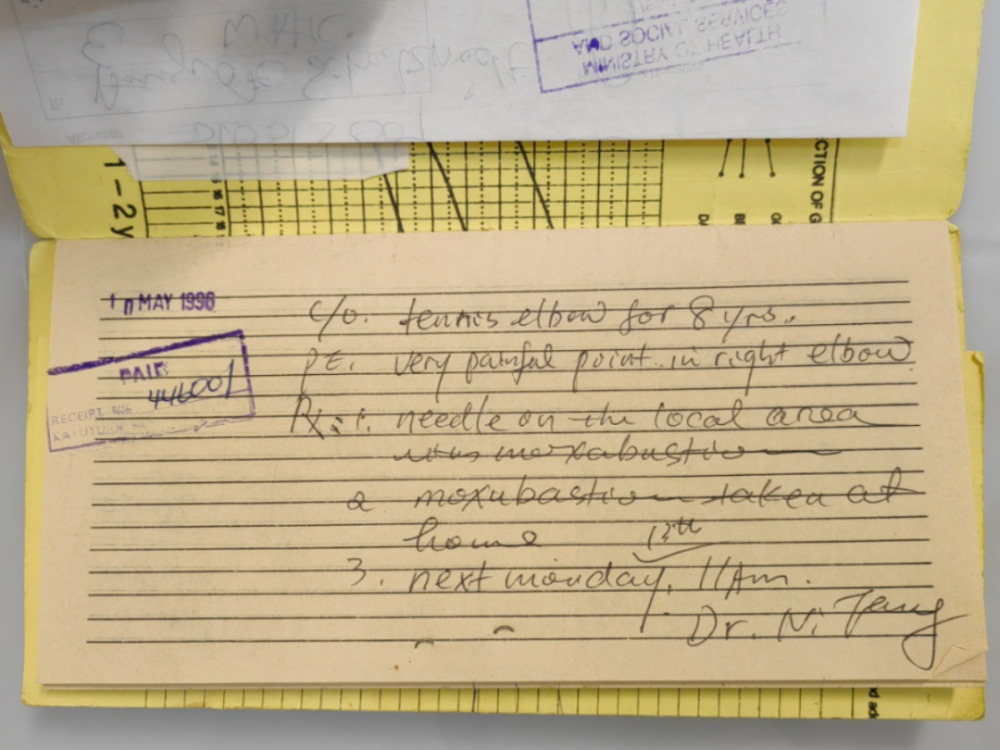 MINISTRY OF HEALTH
AND SOCIAL SERVICES
1 - 2 y
16 17 18
CTION OF G
10 MAY 1996
PAID
446001
RECEIPT No
KATUTURA
c/o. tennis elbow for 8 yrs.
PE. very painful point in right elbow
Rx: 1. needle on the local area
moxabustion
2 moxubastion taken at
home
13th
3. next monday, 11Am.
Dr. Ni